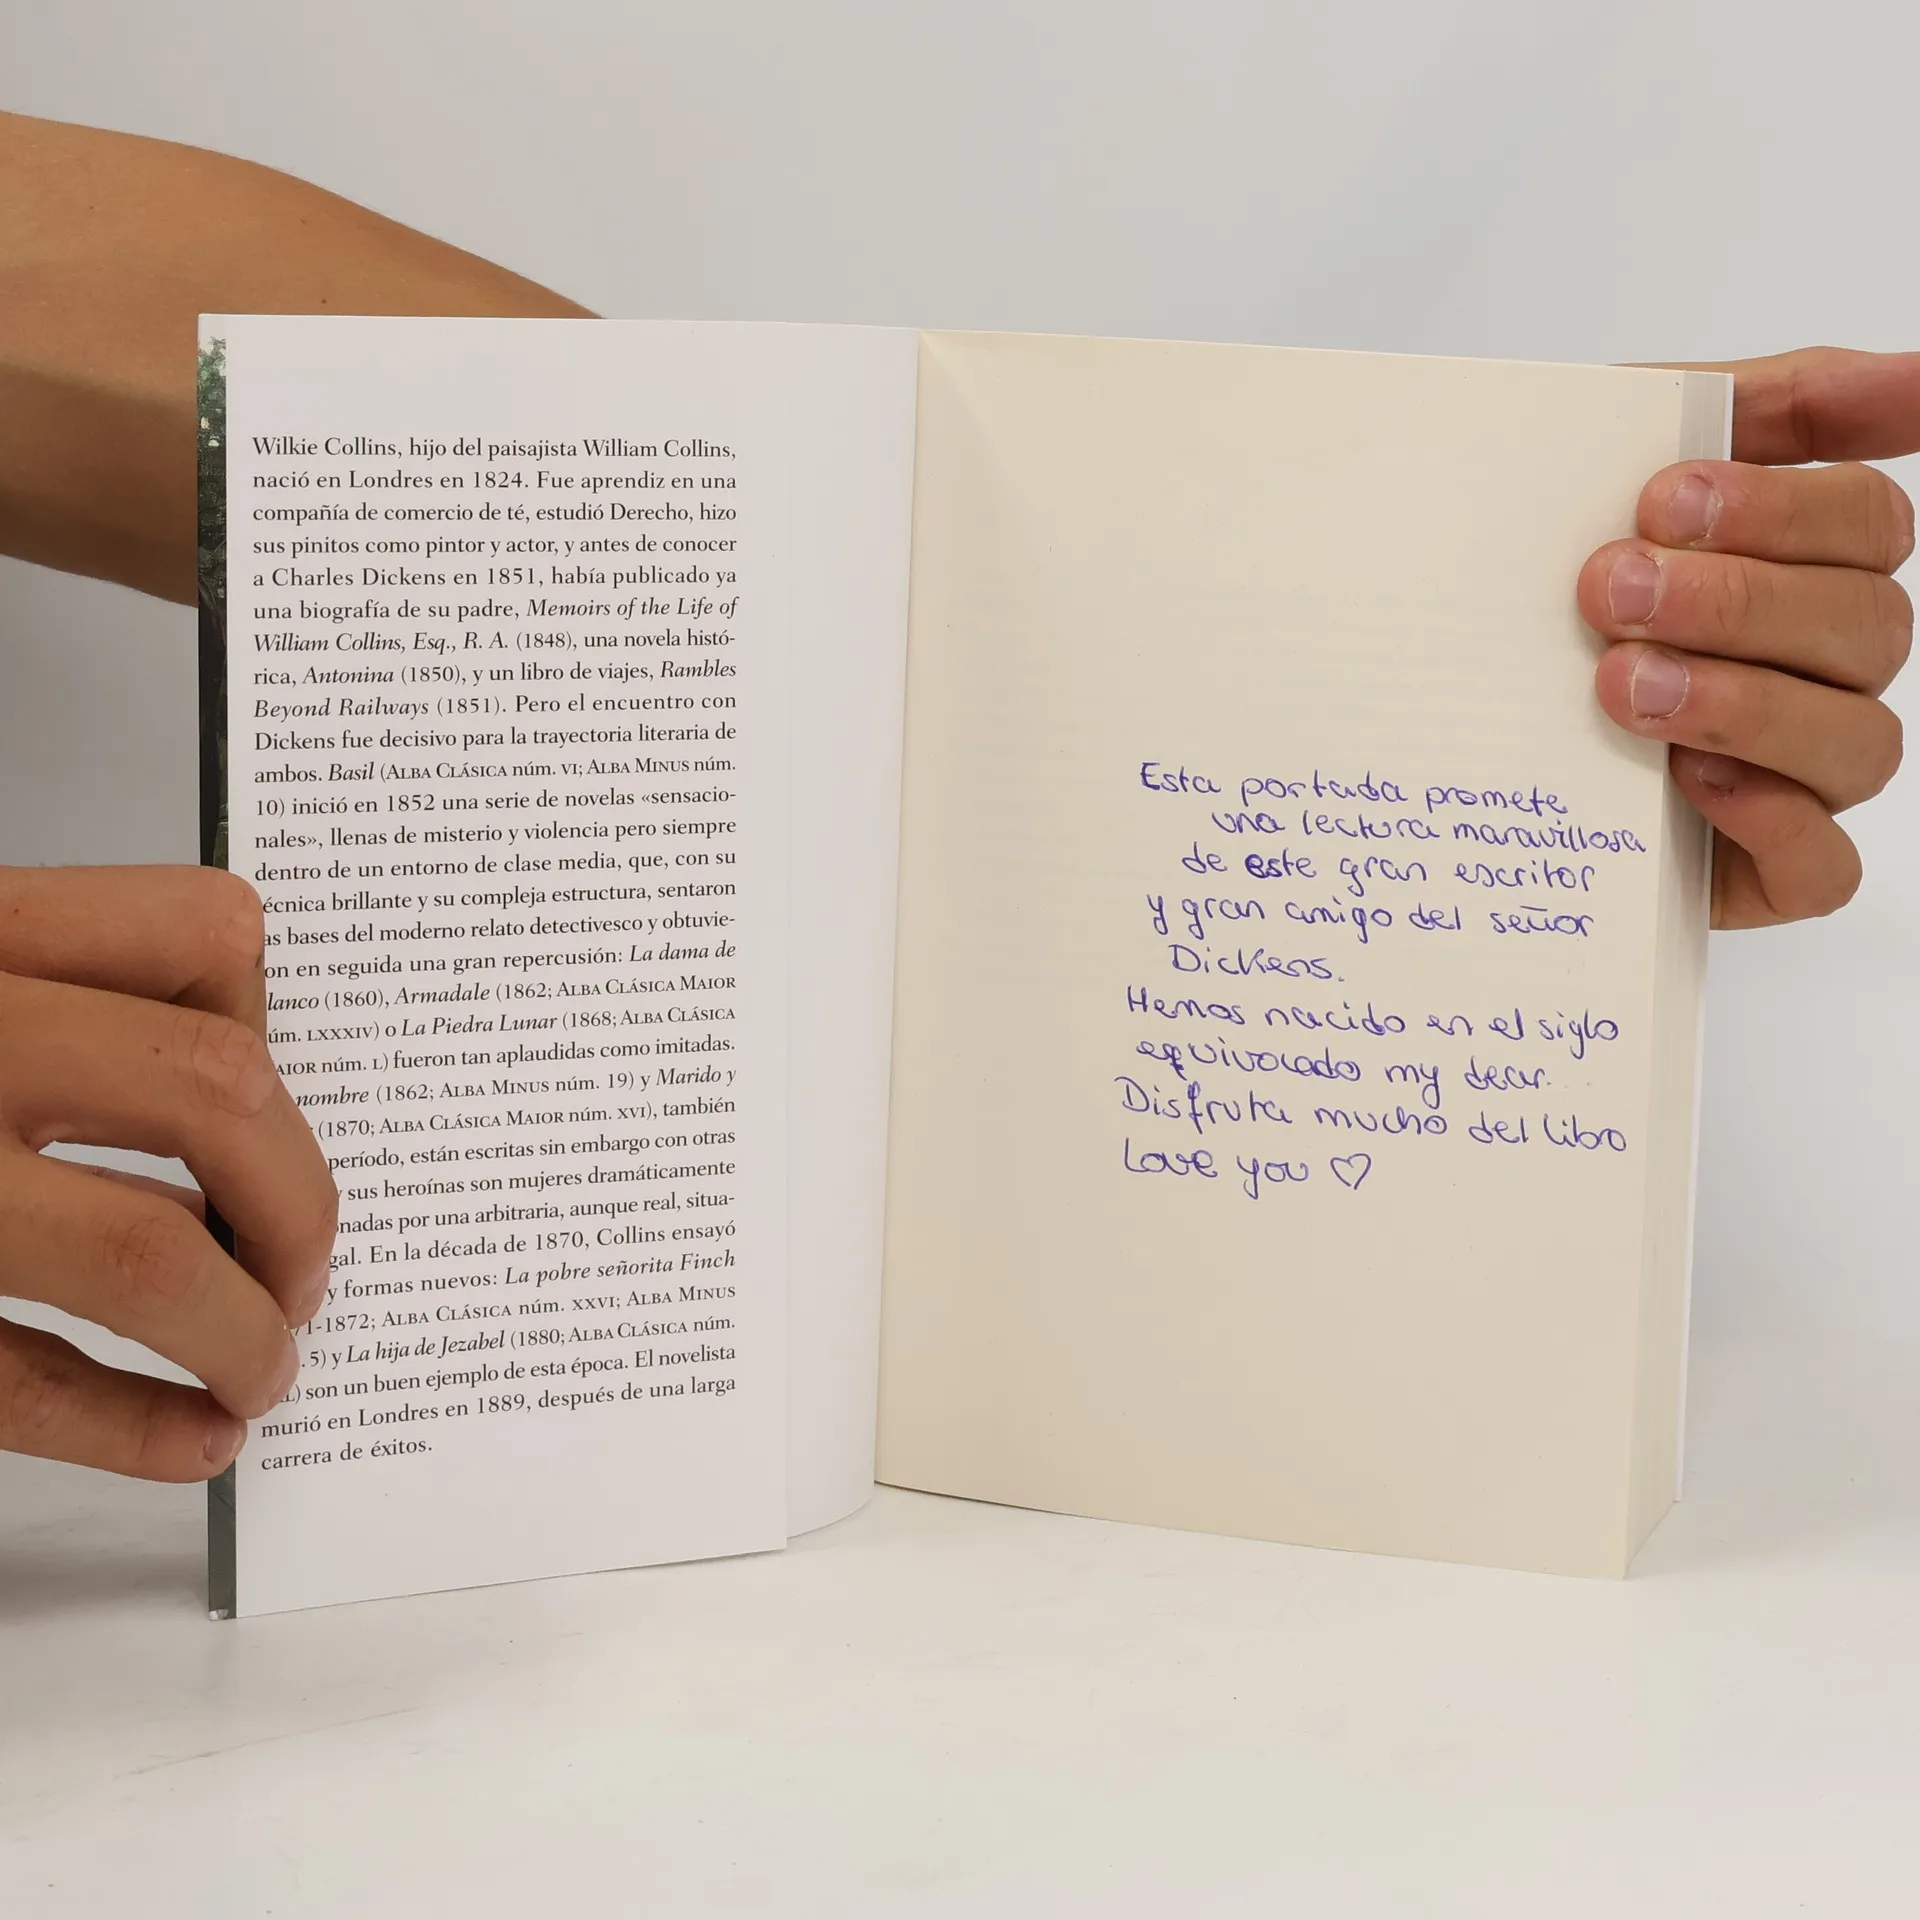 Wilkie Collins, hijo del paisajista William Collins,
nació en Londres en 1824. Fue aprendiz en una
compañía de comercio de té, estudió Derecho, hizo
sus pinitos como pintor y actor, y antes de conocer
a Charles Dickens en 1851, había publicado ya
una biografía de su padre, Memoirs of the Life of
William Collins, Esq., R. A. (1848), una novela histó-
rica, Antonina (1850), y un libro de viajes, Rambles
Beyond Railways (1851). Pero el encuentro con
Dickens fue decisivo para la trayectoria literaria de
ambos. Basil (ALBA CLÁSICA núm. VI; ALBA MINUS núm.
10) inició en 1852 una serie de novelas «sensacio-
nales», llenas de misterio y violencia pero siempre
dentro de un entorno de clase media, que, con su
écnica brillante y su compleja estructura, sentaron
as bases del moderno relato detectivesco y obtuvie-
on en seguida una gran repercusión: La dama de
lanco (1860), Armadale (1862; ALBA CLÁSICA MAIOR
úm. LXXXIV) o La Piedra Lunar (1868; ALBA CLÁSICA
AIOR núm. L) fueron tan aplaudidas como imitadas.
nombre (1862; ALBA MINUS núm. 19) y Marido y
(1870; ALBA CLÁSICA MAIOR núm. XVI), también
período, están escritas sin embargo con otras
y sus heroínas son mujeres dramáticamente
onadas por una arbitraria, aunque real, situa-
gal. En la década de 1870, Collins ensayó
y formas nuevos: La pobre señorita Finch
71-1872; ALBA CLÁSICA núm. XXVI; ALBA MINUS
. 5) y La hija de Jezabel (1880; ALBA CLÁSICA núm.
L) son un buen ejemplo de esta época. El novelista
murió en Londres en 1889, después de una larga
carrera de éxitos.
Esta portada promete
una lectura maravillosa
de este gran escritor
y gran amigo del señor
Dickens.
Hemos nacido en el siglo
equivocado my dear.
Disfruta mucho del libro
Love you ♡